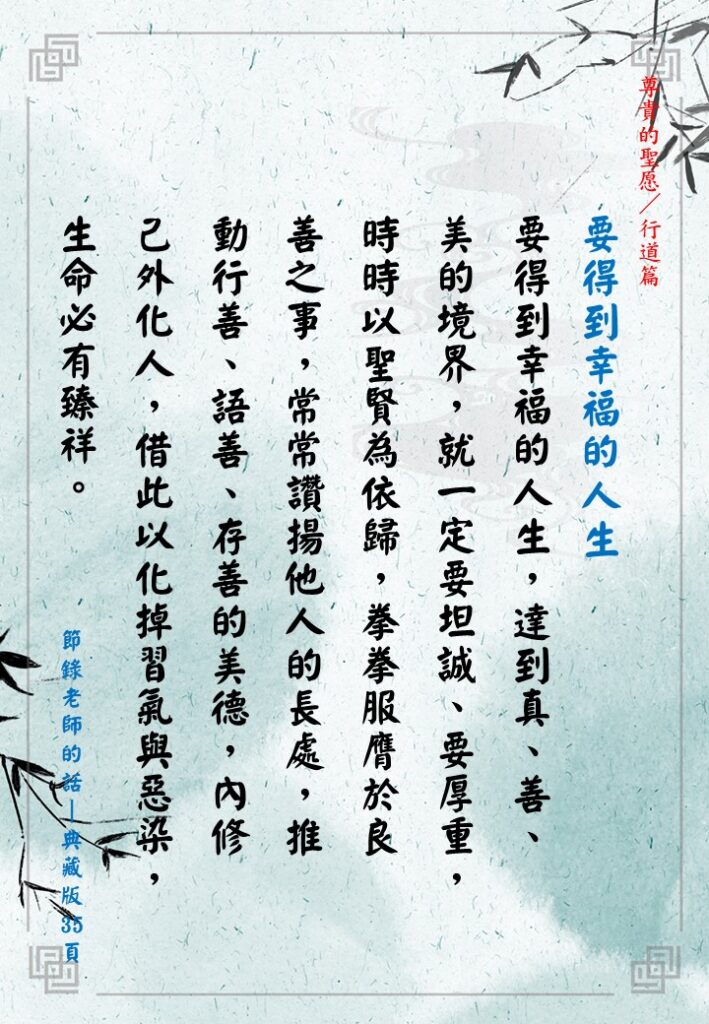 尊貴的聖愿／行道篇
要得到幸福的人生
要得到幸福的人生，達到真、善、
美的境界，就一定要坦誠、要厚重，
時時以聖賢為依歸，拳拳服膺於良
善之事，常常讚揚他人的長處，推
動行善、語善、存善的美德，內修
己外化人，借此以化掉習氣與惡染，
生命必有臻祥。
節錄老師的話—典藏版35頁